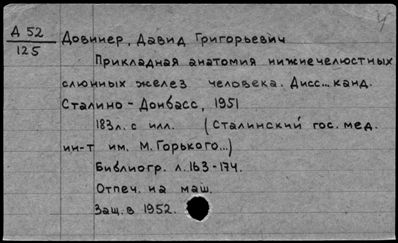 А 52
125
Довинер, Давид Григорьевич
Прикладная анатомия нижнечелюстных
слюнных желез человека. Дисс... канд.
Сталино - Донбасс, 1951
183л. с илл. (Сталинский гос. мед.
ин-т им. М. Горького...)
Библиогр. л. 163-174.
Отпеч. на маш.
Защ. в 1952.